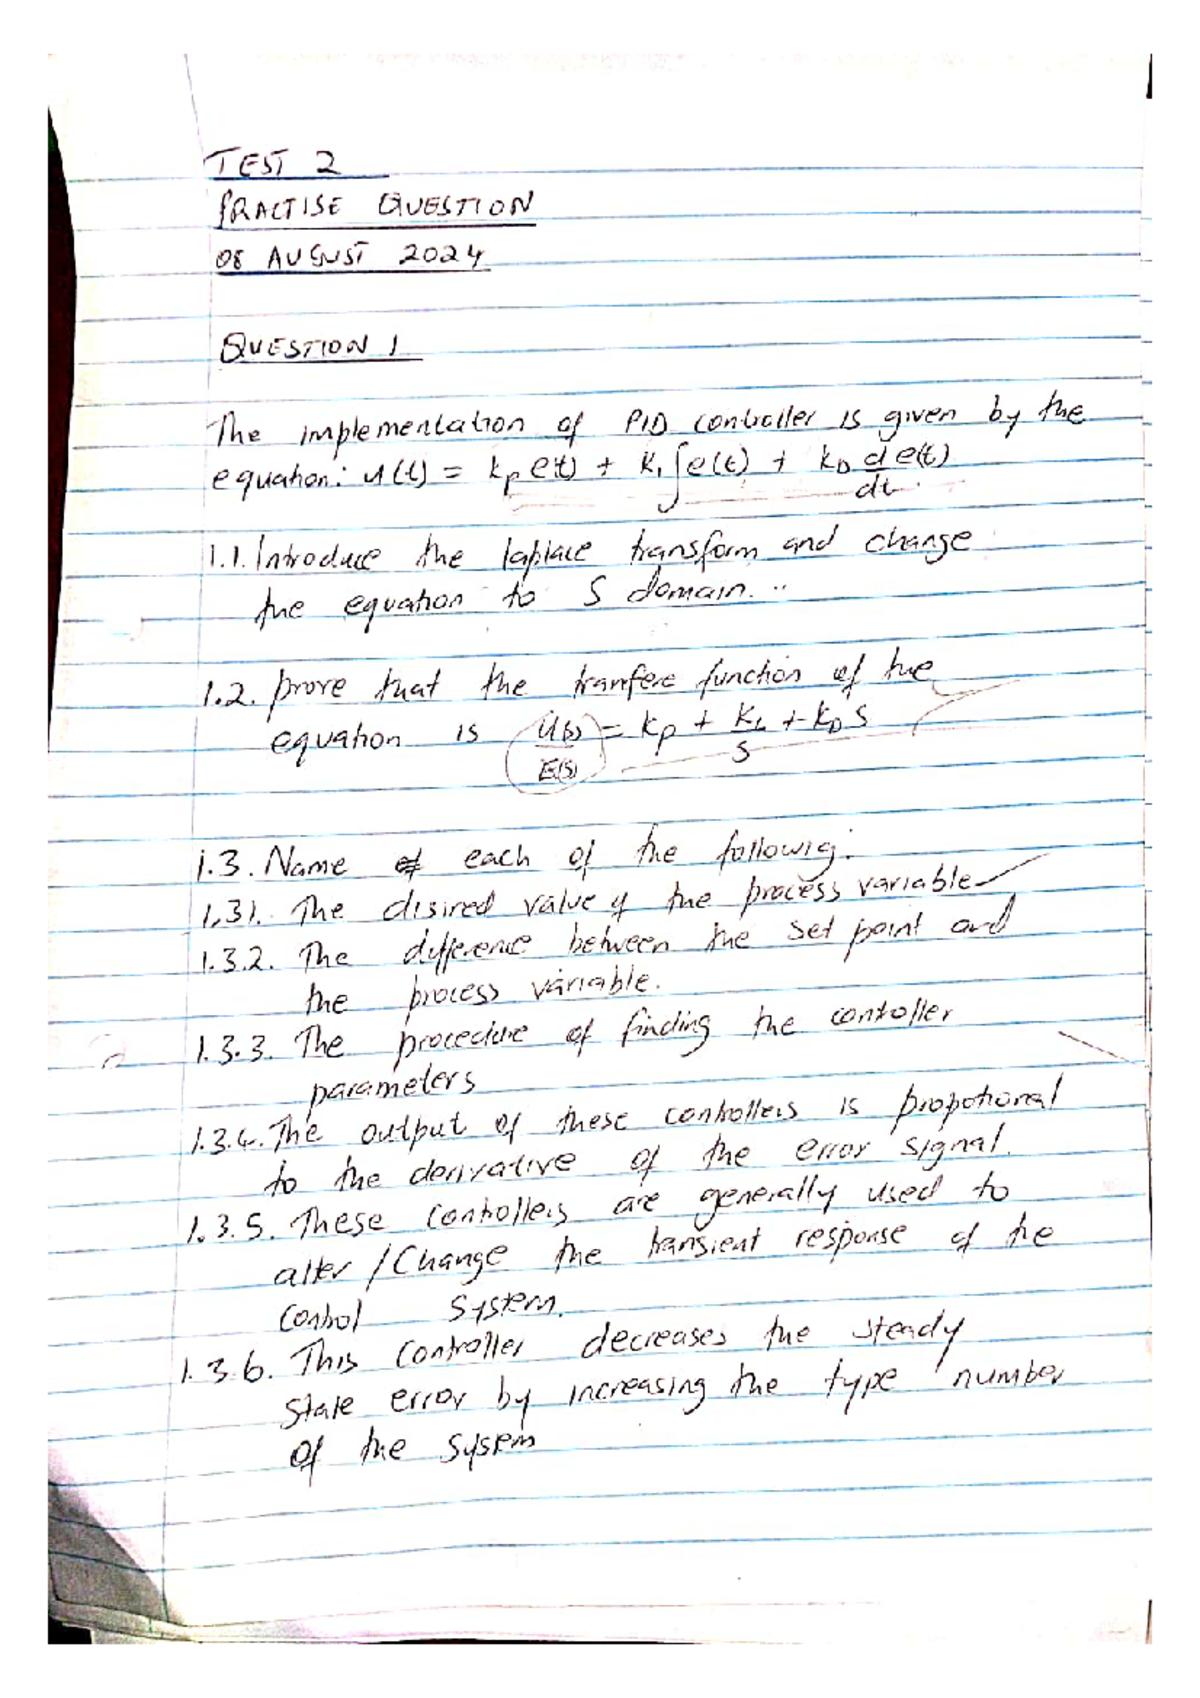 TEST 2
PRACTISE QUESTION
08 AUGUST 2024
QUESTION 1
The implementation of PID controller is given by the
equation: u(t) = kp e(t) + KI ∫e(t) + kD d e(t)
dt
1.1. Introduce the laplace transform and change
the equation to S domain...
1.2. prove that the tranfere function of the
equation is U(s) = kp + Ki + kD S
E(s) S
1.3. Name of each of the followig.
1.31. The disired value of the process variable
1.3.2. The difference between the set point and
the process variable.
1.3.3. The procedure of finding the controller
parameters
1.3.4. The output of these controllers is propotional
to the derivative of the error signal.
1.3.5. These controllers are generally used to
alter / Change the transient response of the
control system.
1.3.6. This controller decreases the steady
state error by increasing the type number
of the system